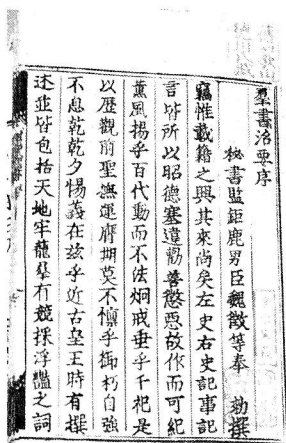 羣書治要序
秘書監鉅鹿男臣魏徵等奉 勅撰
竊惟載籍之興其來尚矣左史右史記事記
言皆所以昭德塞違勸善懲惡故作而可紀
薰風揚乎百代動而不法炯戒垂乎千祀是
以歷觀前聖撫運膺期莫不懍乎御朽自強
不息乾乾夕惕義在茲乎近古皇王時有撰
述並皆包括天地牢籠羣有競採浮豔之詞